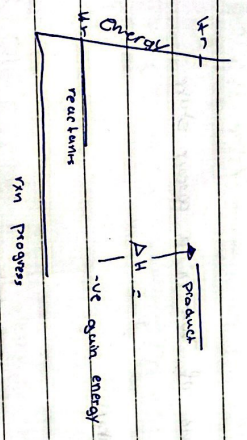 Energy
Hr
Hr
reactants
product
ΔH =
-ve gain energy
rxn progress